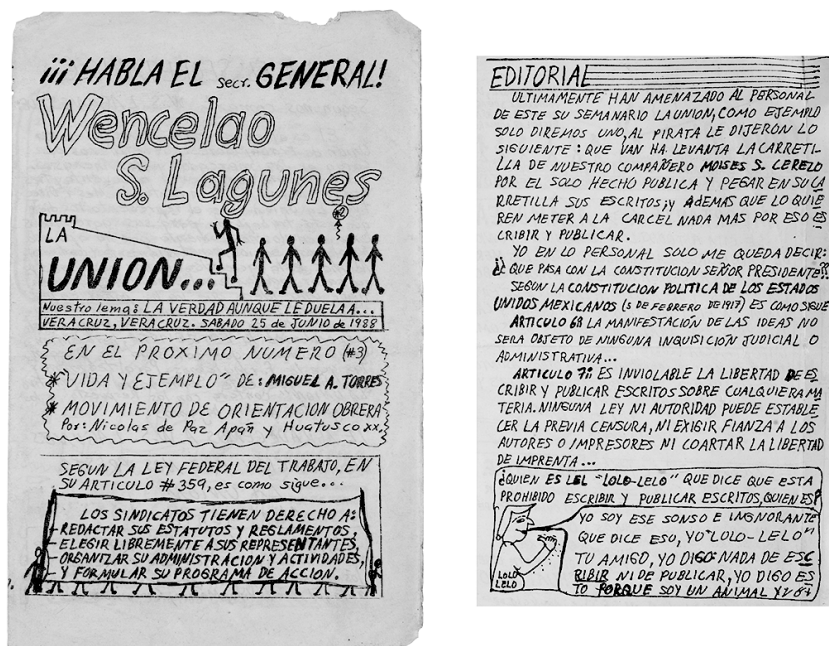 ¡¡¡HABLA EL secr. GENERAL!
Wencelao
S. Lagunes
#2
LA
UNION...
Nuestro lema: LA VERDAD AUNQUE LE DUELA A...
VERACRUZ, VERACRUZ. SABADO 25 de JUNIO de 1988
EN EL PROXIMO NUMERO (#3)
*"VIDA Y EJEMPLO" DE: MIGUEL A. TORRES
*MOVIMIENTO DE ORIENTACION OBRERA
Por: Nicolas de Paz Apañ y Huatusco xx.
SEGUN LA LEY FEDERAL DEL TRABAJO, EN
SU ARTICULO #359, es como sigue...
LOS SINDICATOS TIENEN DERECHO A:
REDACTAR SUS ESTATUTOS Y REGLAMENTOS,
ELEGIR LIBREMENTE A SUS REPRESENTANTES,
ORGANIZAR SU ADMINISTRACION Y ACTIVIDADES,
Y FORMULAR SU PROGRAMA DE ACCION.
EDITORIAL
ULTIMAMENTE HAN AMENAZADO AL PERSONAL
DE ESTE SU SEMANARIO LA UNION, COMO EJEMPLO
SOLO DIREMOS UNO, AL PIRATA LE DIJERON LO
SIGUIENTE: QUE VAN HA LEVANTA LA CARRETI-
LLA DE NUESTRO COMPAÑERO MOISES S. CEREZO
POR EL SOLO HECHO PUBLICA Y PEGAR EN SU CA
RRETILLA SUS ESCRITOS; Y ADEMAS QUE LO QUIE
REN METER A LA CARCEL NADA MAS POR ESO ES
CRIBIR Y PUBLICAR.
YO EN LO PERSONAL SOLO ME QUEDA DECIR:
¿¿ QUE PASA CON LA CONSTITUCION SEÑOR PRESIDENTE??
SEGUN LA CONSTITUCION POLITICA DE LOS ESTADOS
UNIDOS MEXICANOS (5 DE FEBRERO DE 1917) ES COMO SIGUE
ARTICULO 6º LA MANIFESTACIÓN DE LAS IDEAS NO
SERA OBJETO DE NINGUNA INQUISICIÓN JUDICIAL O
ADMINISTRATIVA...
ARTICULO 7º: ES INVIOLABLE LA LIBERTAD DE ES
CRIBIR Y PUBLICAR ESCRITOS SOBRE CUALQUIERA MA
TERIA. NINGUNA LEY NI AUTORIDAD PUEDE ESTABLE
CER LA PREVIA CENSURA, NI EXIGIR FIANZA A LOS
AUTORES O IMPRESORES NI COARTAR LA LIBERTAD
DE IMPRENTA...
¿QUIEN ES LEL "LOLO-LELO" QUE DICE QUE ESTA
PROHIBIDO ESCRIBIR Y PUBLICAR ESCRITOS, QUIEN ES?
YO SOY ESE SONSO E INGNORANTE
QUE DICE ESO, YO "LOLO-LELO"
TU AMIGO, YO DIGO NADA DE ESC
RIBIR NI DE PUBLICAR, YO DIGO ES
TO PORQUE SOY UN ANIMAL
LOLO
LELO